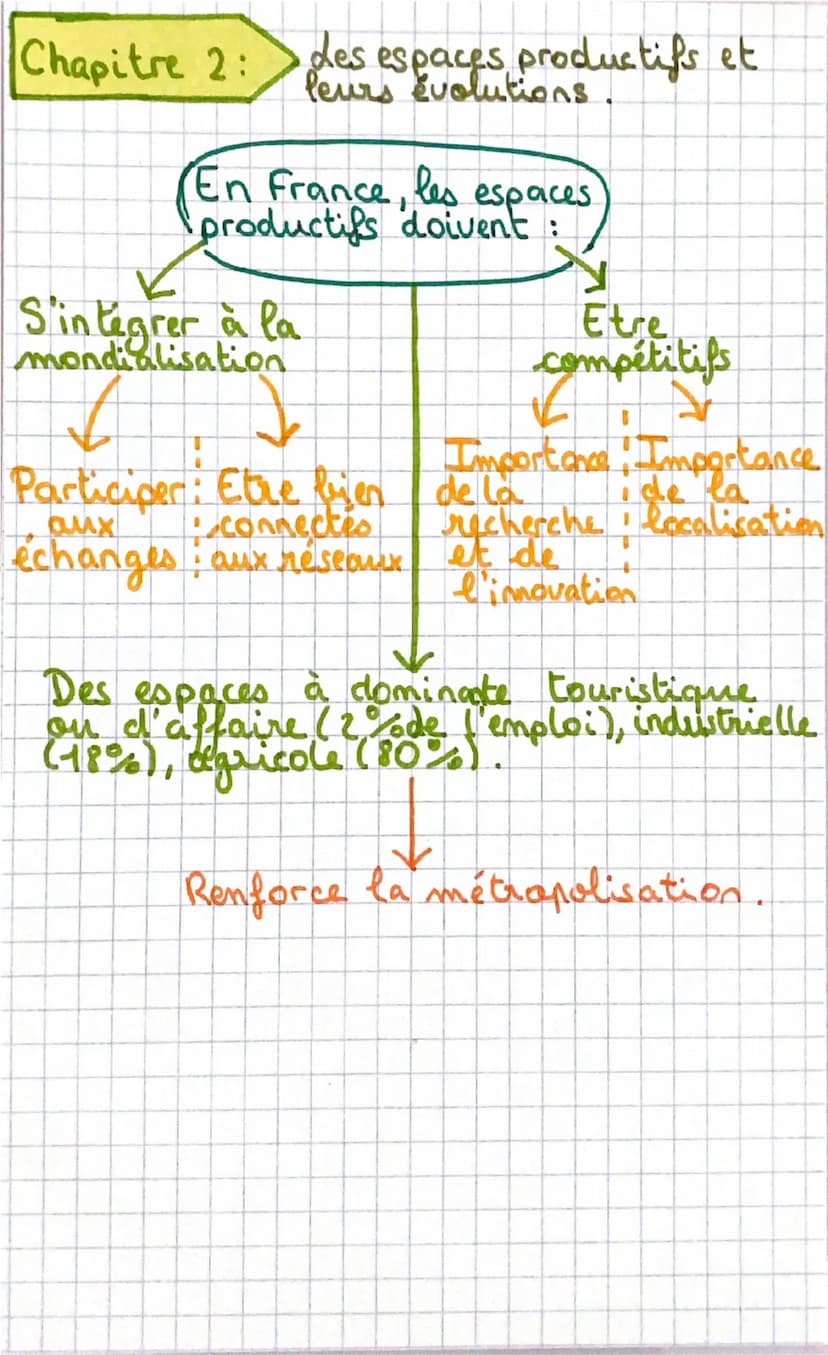 Chapitre 2:
des espaces productifs et
leurs évolutions.
En France, les espaces
productifs doivent :
S'intégrer à la
mondialisation
Etre
compétitifs
Participer
aux
échanges
Etre bien
connectés
aux réseaux
Importance
de la
recherche
et de
l'innovation
Importance
de la
localisation
Des espaces à dominante touristique
ou d'affaire (2% de l'emploi), industrielle
(18%), agricole (80%).
Renforce la métropolisation.